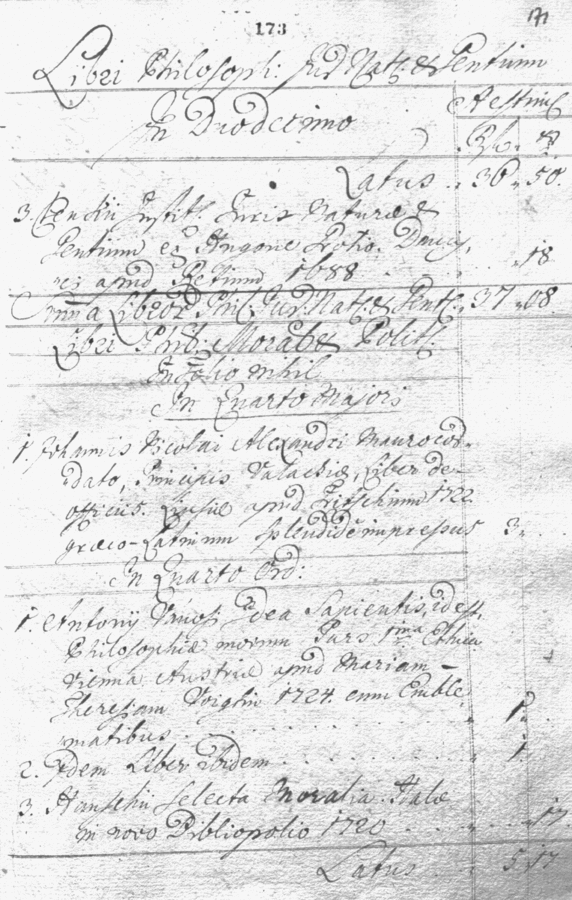 173
171
Libri Philosoph: Jur. Nat. & Gentium
Aestim
In Duodecimo
Latus .. 36 .. 50.
3. Instit. Juris Naturæ &
Gentium ex Hugone Grotio.
apud 1688 .. 18
Summa Libror. Phil. Jur. Nat. & Gent. 37 .. 08.
Libri Phil. Moral & Polit.
In Folio nihil
In Quarto Majori
1. Johannis Nicolai Alexandri Maurocor-
dato, Principis Valachiæ, Liber de
officiis. Lipsiæ apud Fritschium 1722
græco-Latinum splendide impressus 3..
In Quarto Ord:
1. Antonij Idea Sapientis, id est,
Philosophiæ morum Pars 1ma Ethica
Viennæ Austriæ apud Mariam
Theresiam Voigtin 1724. cum Emble-
matibus . . . 1..
2. Idem Liber Ibidem . . . 1..
3. Hanschii Selecta Moralia. Halæ
in novo Bibliopolio 1720 . . . 17.
Latus . . 5 17